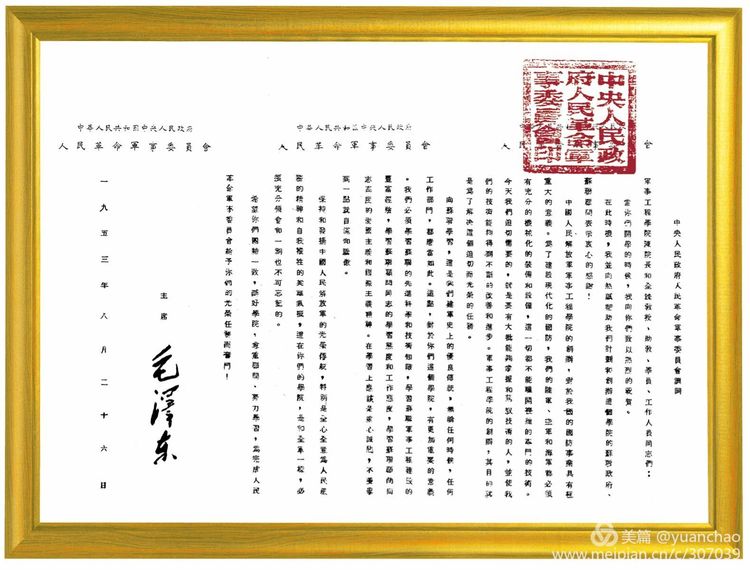 中央人民政府人民革命軍事委員會印
中華人民共和國中央人民政府
人民革命軍事委員會
中華人民共和國中央人民政府
人民革命軍事委員會
人
會
中央人民政府人民革命軍事委員會訓詞
軍事工程學院陳院長和全體教授、助教、學員、工作人員同志們：
當你們開學的時候，我向你們致以熱烈的祝賀。
在此時機，我並向熱誠幫助我們計劃和創辦這個學院的蘇聯政府、
蘇聯顧問表示衷心的感謝！
中國人民解放軍軍事工程學院的創辦，對於我國的國防事業具有極
重大的意義。為了建設現代化的國防，我們的陸軍、空軍和海軍都必須
有充分的機械化的裝備和設備，這一切都不能離開複雜的專門的技術。
今天我們迫切需要的，就是要有大批能夠掌握和駕馭技術的人，並使我
們的技術能夠得到不斷的改善和進步。軍事工程學院的創辦，其目的就
是為了解決這個迫切而光榮的任務。
向蘇聯學習，這是我們建軍史上的優良傳統，無論任何時候，任何
工作部門，都應當如此。這點，對於你們這個學院，有更加重要的意義
。我們必須學習蘇聯的先進科學和技術知識，學習蘇聯軍事工程建設的
豐富經驗，學習蘇聯顧問同志的學習態度和工作態度，學習蘇聯顧問同
志高度的愛國主義和國際主義精神。在學習上應該是虛心誠懇，不要學
到一點就自滿和驕傲。
保持和發揚中國人民解放軍的光榮傳統，特別是全心全意為人民服
務的精神和自我犧牲的英雄氣概，這在你們的學院，是和全軍一樣，必
須充分領會和一刻也不可忘記的。
希望你們團結一致，辦好學院，尊重顧問、努力學習，為完成人民
革命軍事委員會給予你們的光榮任務而奮鬥！
主席
毛澤东
一九五三年八月二十六日
美篇 @yuanchao
www.meipian.cn/c/307039